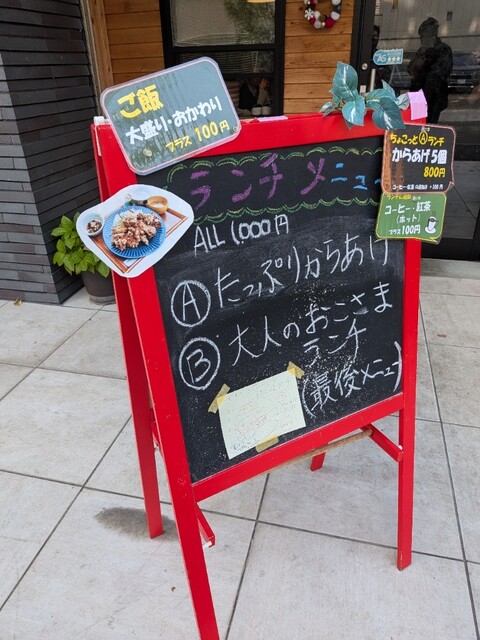 ご飯
大盛り・おかわり
プラス100円
ランチメニュー
ALL 1,000円
Ⓐたっぷりからあげ
Ⓑ大人のおこさま
ランチ
(最後メニュー)
ちょこっとⒶランチ
からあげ5個
800円
コーヒー・紅茶
(ホット)
プラス100円